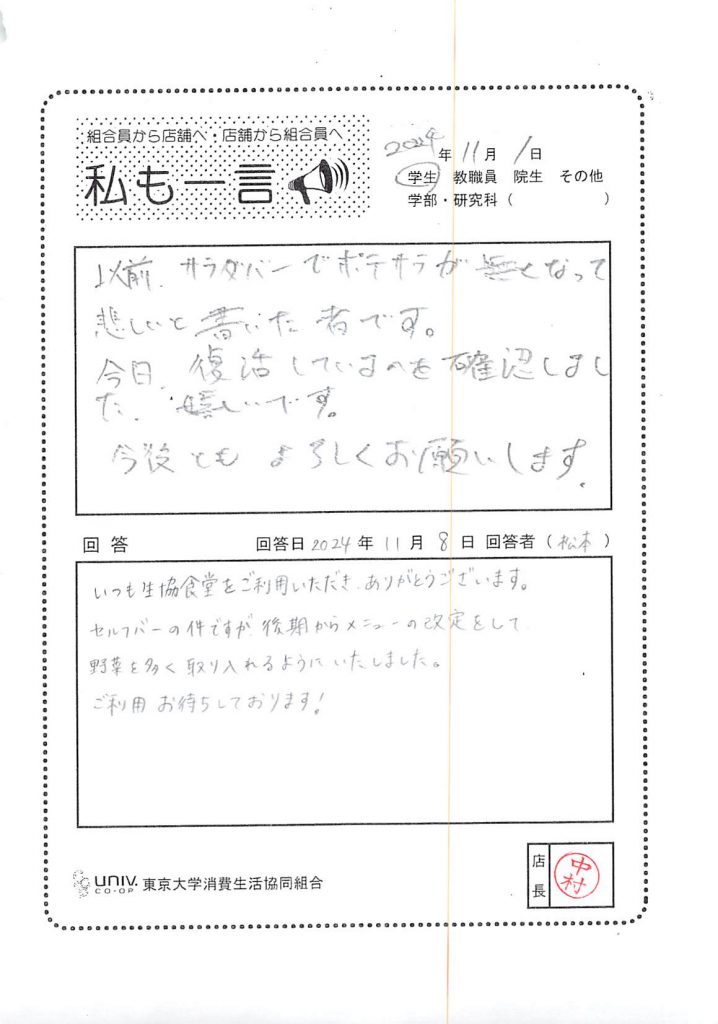 組合員から店舗へ・店舗から組合員へ
私も一言
2024年 11月 1日
学生 教職員 院生 その他
学部・研究科（ ）
以前、サラダバーでポテサラが無くなって
悲しいと書いた者です。
今日、復活しているのを確認しまし
た。嬉しいです。
今後とも よろしくお願いします。
回答 回答日 2024年 11月 8日 回答者（松本）
いつも生協食堂をご利用いただき、ありがとうございます。
セルフバーの件ですが、後期からメニューの改定をして
野菜を多く取り入れるようにいたしました。
ご利用 お待ちしております!
店長
中村
UNIV. CO-OP 東京大学消費生活協同組合